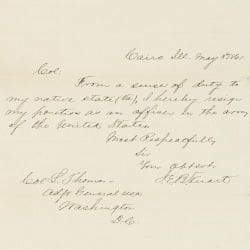 Cairo Ill. May 3rd/61.
Col:
From a sense of duty to
my native state (Va), I hereby resign
my position as an officer in the army
of the United States.
Most Respectfully
Sir
Your Obt Svt
J.E.B. Stuart
Col L. Thomas
Adjt General USA
Washington
D.C.